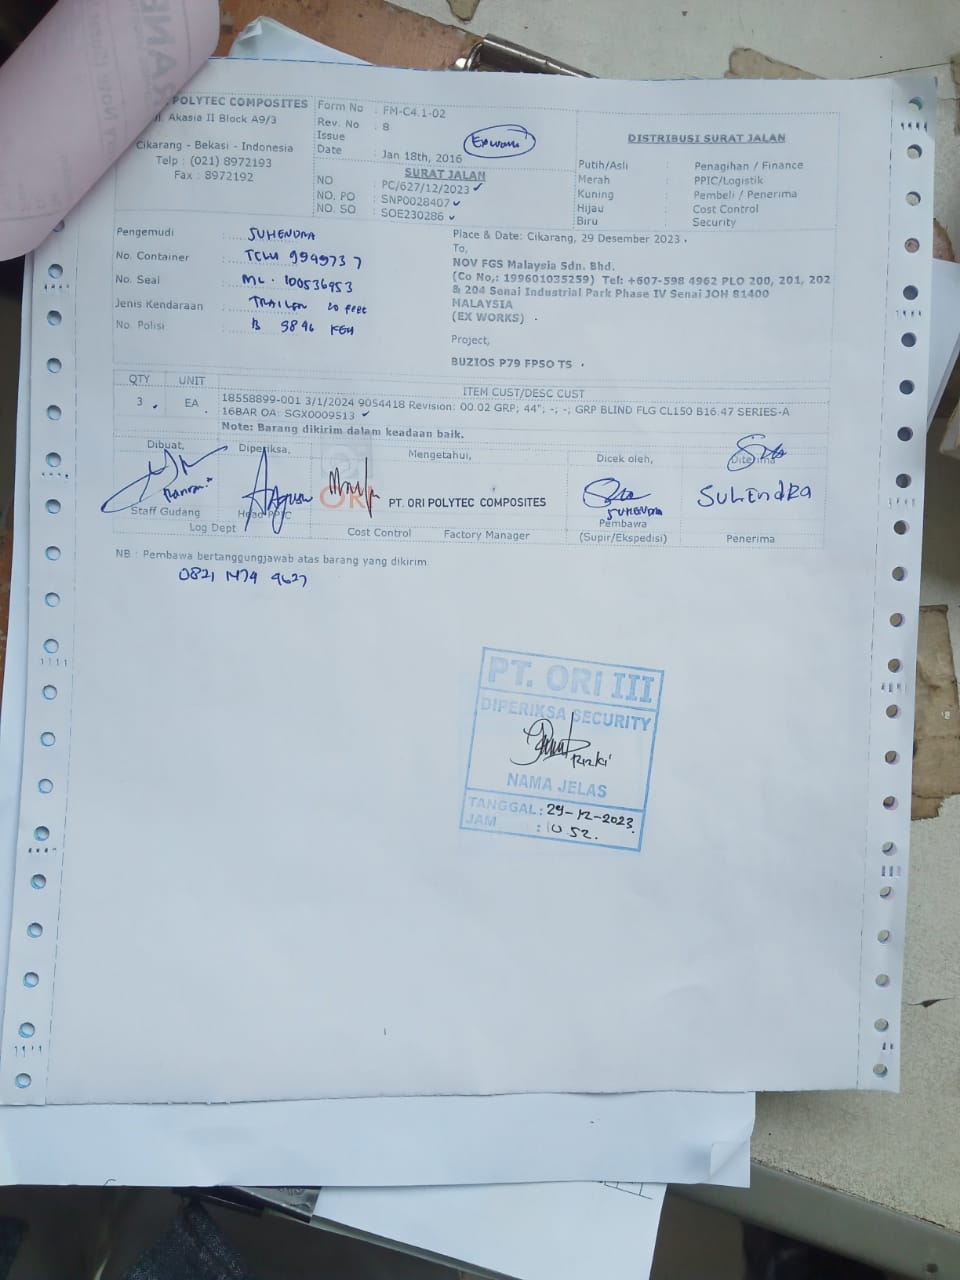 POLYTEC COMPOSITES
Akasia II Block A9/3
Cikarang - Bekasi - Indonesia
Telp : (021) 8972193
Fax : 8972192
Form No : FM-C4.1-02
Rev. No : 8
Issue
Date : Jan 18th, 2016
SURAT JALAN
NO : PC/627/12/2023
NO. PO : SNP0028407
NO. SO : SOE230286
DISTRIBUSI SURAT JALAN
Putih/Asli : Penagihan / Finance
Merah : PPIC/Logistik
Kuning : Pembeli / Penerima
Hijau : Cost Control
Biru : Security
Pengemudi : SUHENDRA
No. Container : 9949737
No. Seal : ML. 100536953
Jenis Kendaraan : 20 feet
No. Polisi : B 9896
Place & Date: Cikarang, 29 Desember 2023
To,
NOV FGS Malaysia Sdn. Bhd.
(Co No,: 199601035259) Tel: +607-598 4962 PLO 200, 201, 202
& 204 Senai Industrial Park Phase IV Senai JOH 81400
MALAYSIA
(EX WORKS)
Project,
BUZIOS P79 FPSO TS
QTY UNIT ITEM CUST/DESC CUST
3 EA 18558899-001 3/1/2024 9054418 Revision: 00.02 GRP; 44"; -; -; GRP BLIND FLG CL150 B16.47 SERIES-A
16BAR OA: SGX0009513
Note: Barang dikirim dalam keadaan baik.
Dibuat, Diperiksa, Mengetahui, Dicek oleh, Diterima
ORI PT. ORI POLYTEC COMPOSITES
SUHENDRA
SUHENDRA
Staff Gudang Head PPIC Pembawa
Log Dept Cost Control Factory Manager (Supir/Ekspedisi) Penerima
NB : Pembawa bertanggungjawab atas barang yang dikirim
0821 1474 9627
PT. ORI III
DIPERIKSA SECURITY
Rizki
NAMA JELAS
TANGGAL : 29-12-2023
JAM : 10 52.